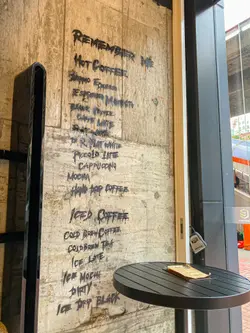 REMEMBER ME
HOT COFFEE
ESPRESSO MACCHIATO
CAFE LATTE
FLAT WHITE
PICCOLO LATTE
CAPPUCCINO
MOCHA
HAND DRIP COFFEE
ICED COFFEE
COLD BREW COFFEE
COLD BREW TEA
ICE LATTE
ICE MOCHA
DIRTY
ICE DRIP BLACK